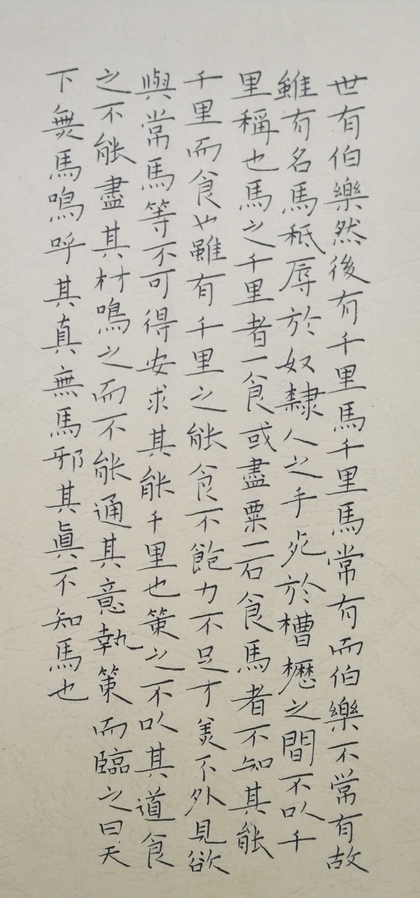 世有伯樂然後有千里馬千里馬常有而伯樂不常有故
雖有名馬秪辱於奴隸人之手死於槽櫪之間不以千
里稱也馬之千里者一食或盡粟一石食馬者不知其能
千里而食也雖有千里之能食不飽力不足才美不外見欲
與常馬等不可得安求其能千里也策之不以其道食
之不能盡其材鳴之而不能通其意執策而臨之曰天
下無馬鳴呼其真無馬邪其眞不知馬也